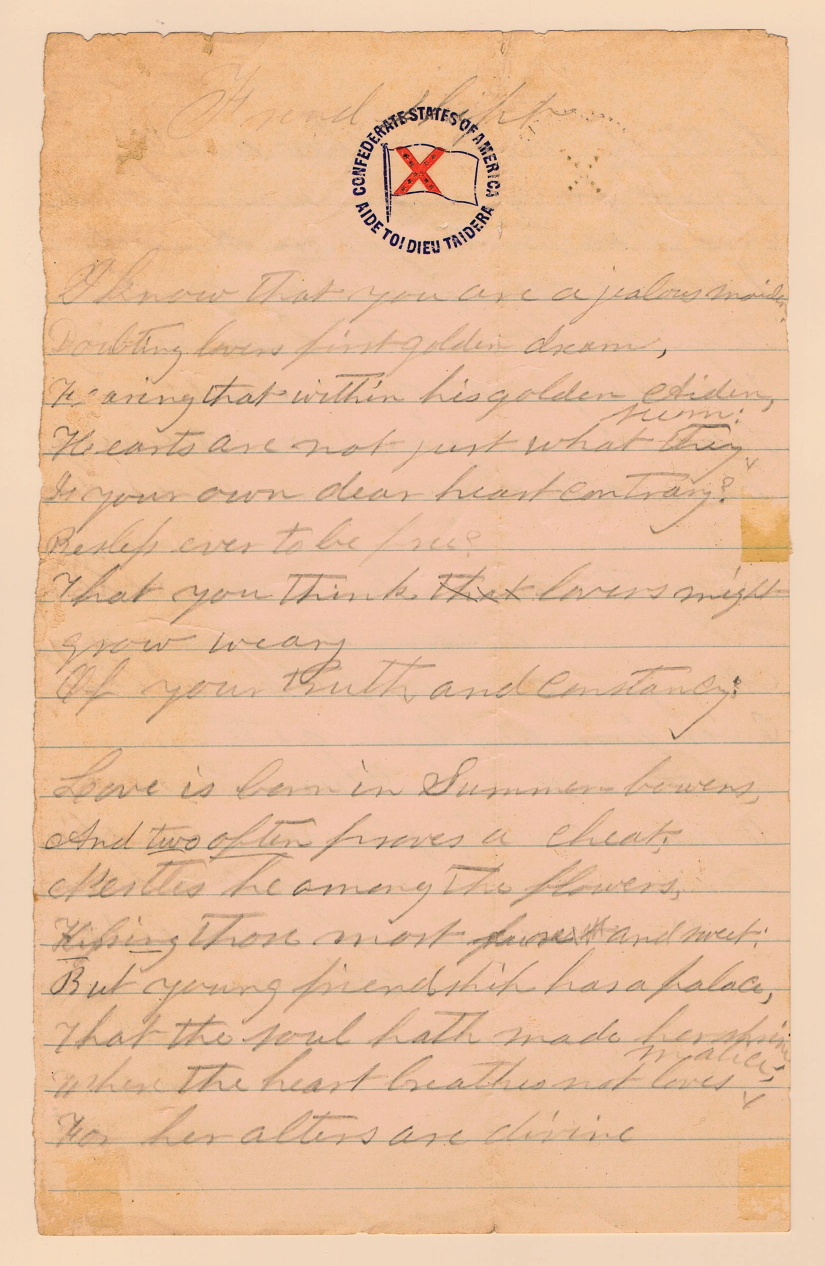 Friendshipp
CONFEDERATE STATES OF AMERICA
AIDE TOI DIEU TAIDERA
I know that you are a jealous maiden,
Doubting lovers first golden dream,
Fearing that within his golden Aiden,
seem:
Hearts are not just what they
Is your own dear heart contrary?
ever to be free?
That you think that lovers might
grow weary
Of your truth and constancy?
Love is born in Summer bowers,
And two often proves a cheat;
Nestles he among the flowers,
Kissing those most and sweet:
But young friendship has a palace,
That the soul hath made her shrine
malice;
Where the heart breathes not loves
For her alters are divine